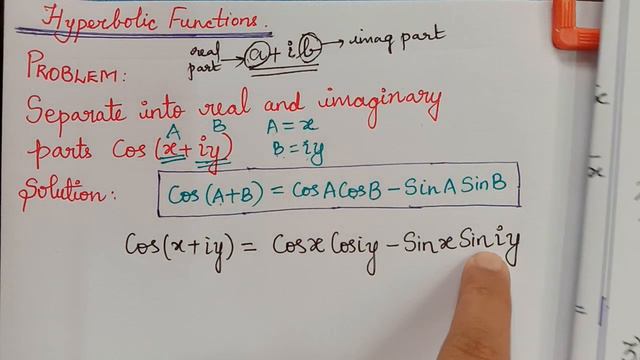 Hyperbolic Functions.
real part → a + ib → imag part
PROBLEM:
Separate into real and imaginary
A B A = x
parts Cos (x + iy) B = iy
Solution: Cos (A+B) = CosA CosB − SinA SinB
Cos(x + iy) = Cosx Cosiy − Sinx Siniy